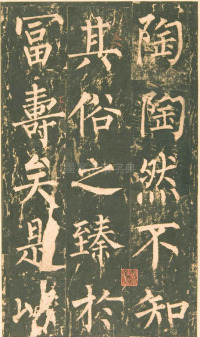 陶陶然不知
其俗之臻於
冨壽矣是以